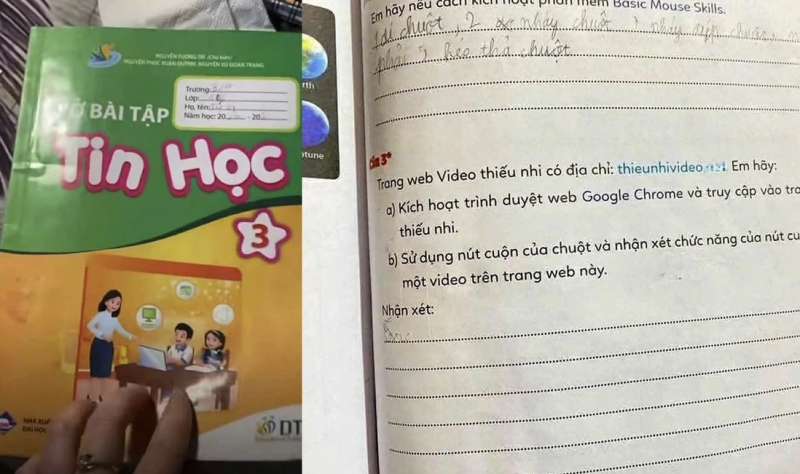 NGUYỄN TƯƠNG TRI (Chủ biên)
NGUYỄN PHÚC XUÂN QUỲNH, NGUYỄN VŨ ĐOAN TRANG
Trường:
Lớp:
Họ, tên:
Năm học: 20 - 20
BÀI TẬP
Tin Học
3
NHÀ XUẤT
ĐẠI HỌC
DT
rth
tune
Em hãy nêu cách kích hoạt phần mềm Basic Mouse Skills.
chuột, 2 nháy chuột 3 nháy
phải 5 kéo thả chuột
3*
Trang web Video thiếu nhi có địa chỉ: thieunhivideo. Em hãy:
a) Kích hoạt trình duyệt web Google Chrome và truy cập vào
thiếu nhi.
b) Sử dụng nút cuộn của chuột và nhận xét chức năng của nút
một video trên trang web này.
Nhận xét: